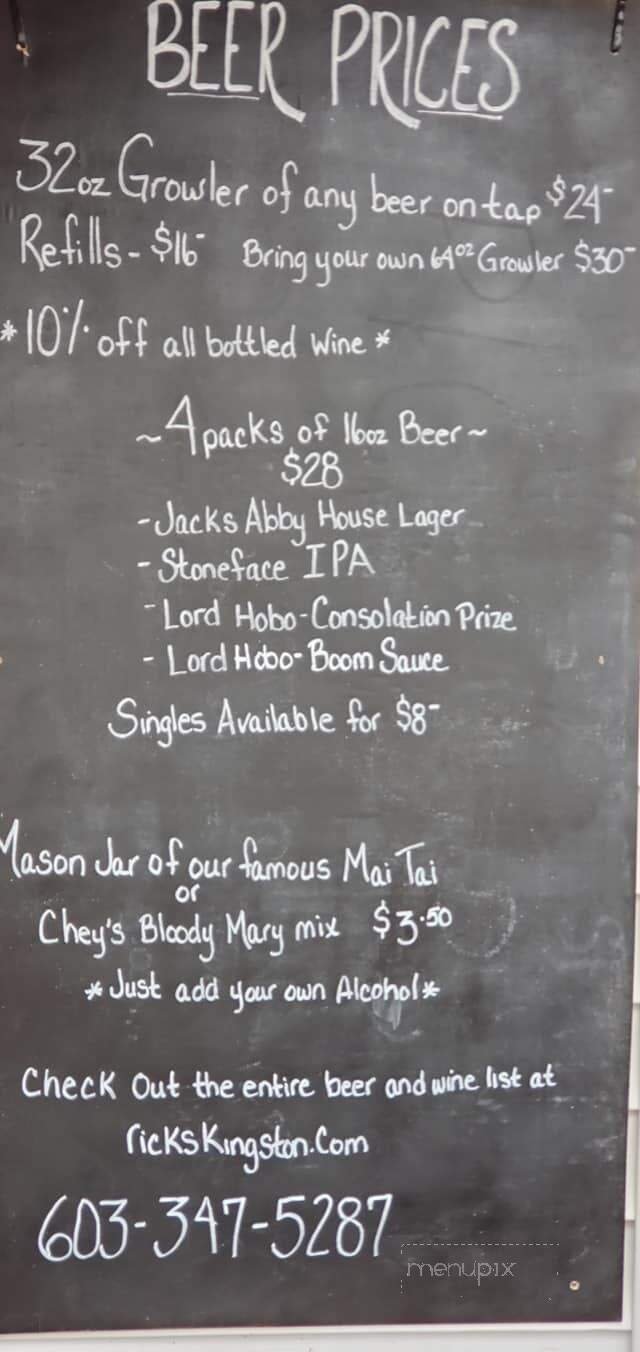 BEER PRICES
32oz Growler of any beer on tap $24-
Refills - $16- Bring your own 64oz Growler $30-
*10% off all bottled wine *
~4packs of 16oz Beer~
$28
-Jacks Abby House Lager
- Stoneface IPA
- Lord Hobo-Consolation Prize
- Lord Hobo- Boom Sauce
Singles Available for $8-
Mason Jar of our famous Mai Tai
or
Chey's Bloody Mary mix $3.50
*Just add your own Alcohol*
Check Out the entire beer and wine list at
ricksKingston.Com
603-347-5287
menupix